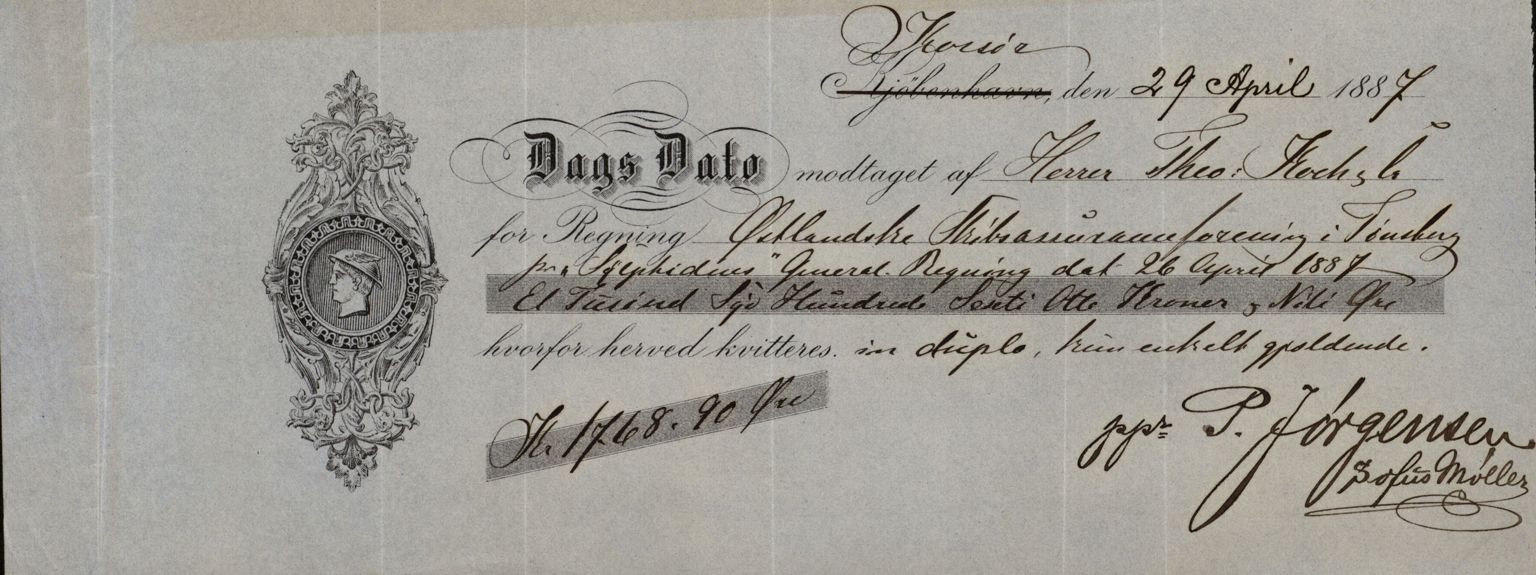 Korsør
Kjöbenhavn, den 29 April 1887
Dags Dato modtaget af Herrer Theo: Koch & Co
for Regning Østlandske Skibsassuranceforening i Tønsberg
pr. „Sylphidens" General-Regning dat 26 April 1887
Et Tusind Syv Hundrede Sexti Otte Kroner & Niti Øre
hvorfor herved kvitteres. in duplo, kun enkelt gjældende.
Kr 1768.90 Øre
ppr P. Jørgensen
Sofus Møller